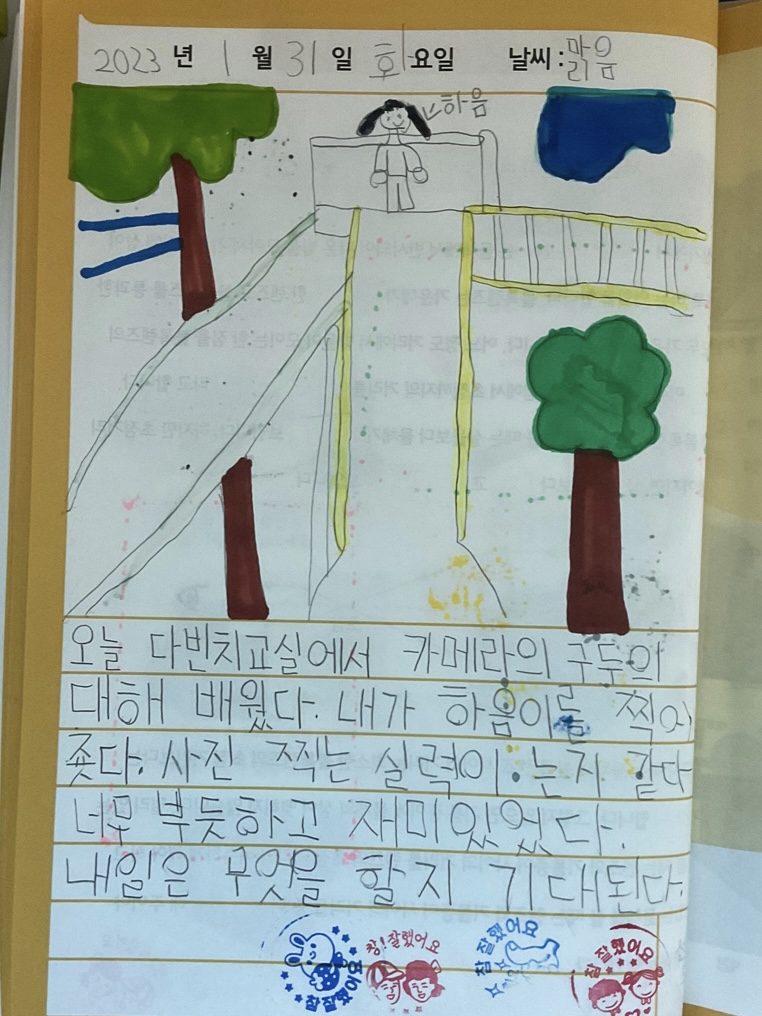 2023 년 1 월 31 일 화요일 날씨 : 맑음
←하음
오늘 다빈치교실에서 카메라의 구두의
대해 배웠다. 내가 하음이를 찍어
줬다. 사진 찍는 실력이 는거 같다
너무 뿌듯하고 재미있었다.
내일은 무엇을 할지 기대된다.
참 잘했어요
참!잘했어요
참 잘했어요
참 잘했어요